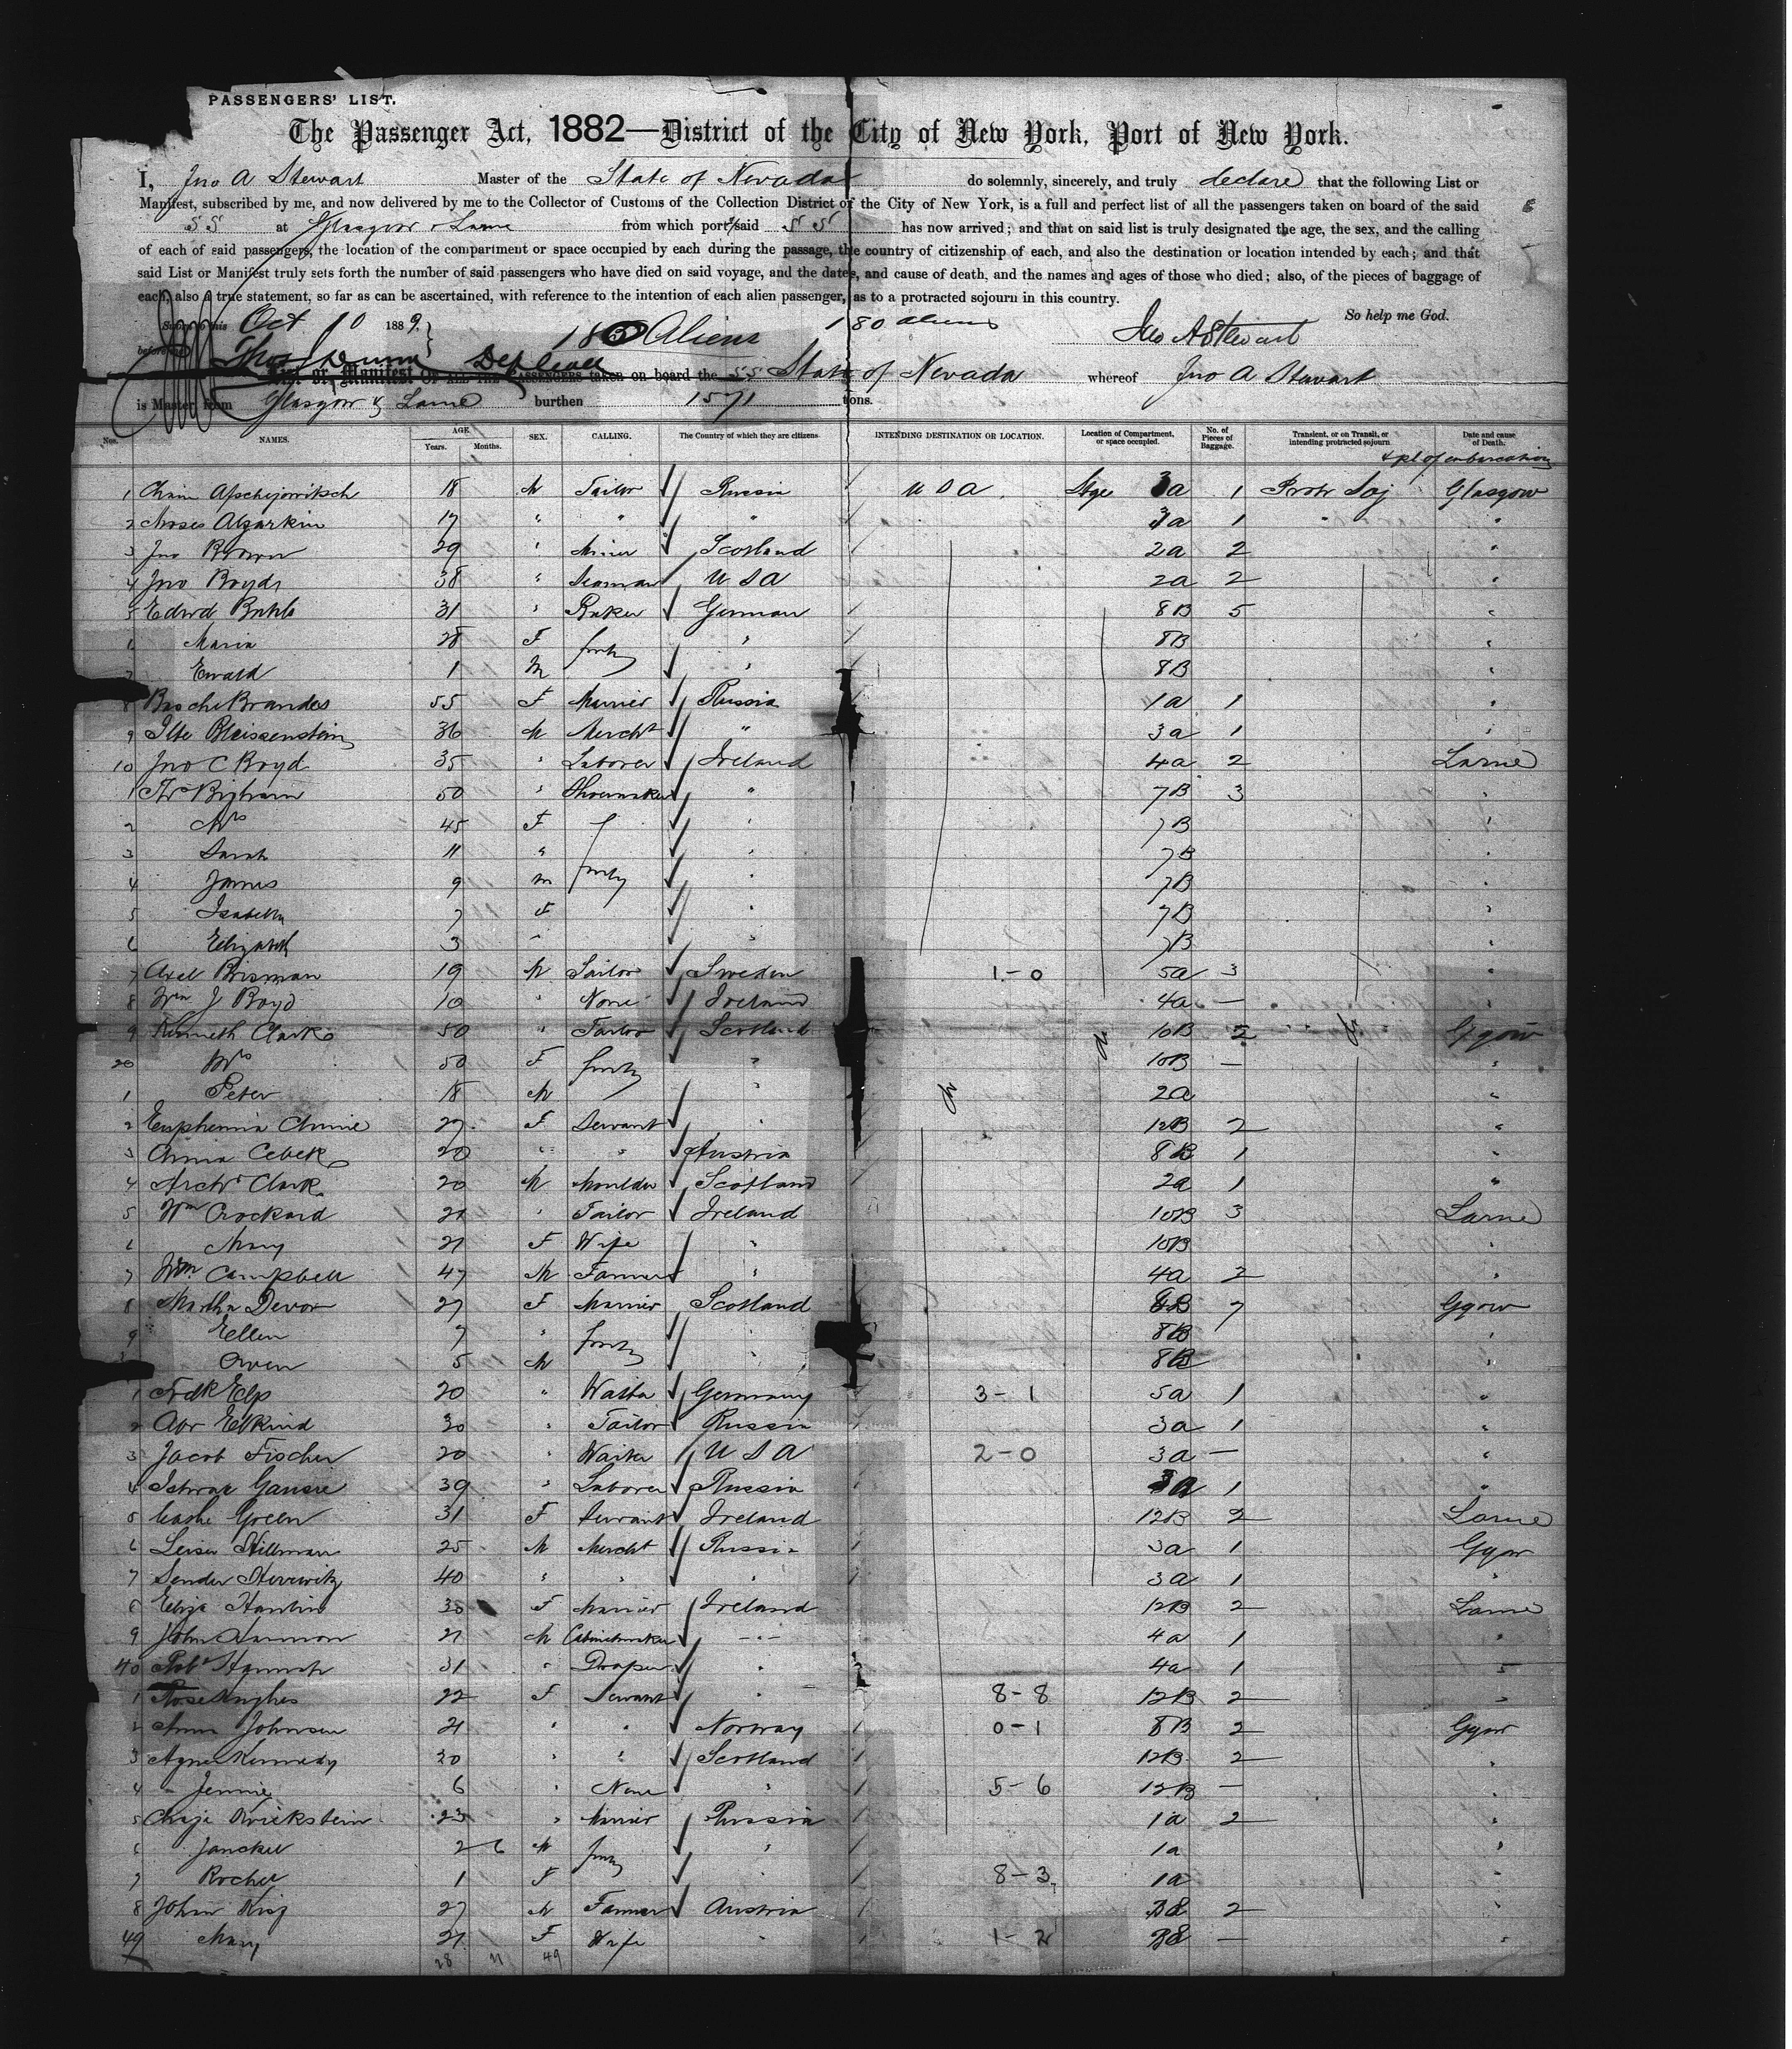 PASSENGERS' LIST.
The Passenger Act, 1882—District of the City of New York, Port of New York.
I, Jno A Stewart Master of the State of Nevada do solemnly, sincerely, and truly declare that the following List or
Manifest, subscribed by me, and now delivered by me to the Collector of Customs of the Collection District of the City of New York, is a full and perfect list of all the passengers taken on board of the said
SS at Glasgow & Larne from which port said SS has now arrived; and that on said list is truly designated the age, the sex, and the calling
of each of said passengers, the location of the compartment or space occupied by each during the passage, the country of citizenship of each, and also the destination or location intended by each; and that
said List or Manifest truly sets forth the number of said passengers who have died on said voyage, and the dates, and cause of death, and the names and ages of those who died; also, of the pieces of baggage of
each, also a true statement, so far as can be ascertained, with reference to the intention of each alien passenger, as to a protracted sojourn in this country.
So help me God.
Sworn to this Oct 10 1889. 180 Aliens 180 aliens Jno A Stewart
before me Thos Dunn
List or Manifest OF ALL THE PASSENGERS taken on board the SS State of Nevada whereof Jno A Stewart
is Master, from Glasgow & Larne burthen 1571 tons.
Nos. NAMES. AGE. Years. Months. SEX. CALLING. The Country of which they are citizens. INTENDING DESTINATION OR LOCATION. Location of Compartment, or space occupied. No. of Pieces of Baggage. Transient, or on Transit, or intending protracted sojourn Date and cause of Death.
& pl of embarcation
1 18 M Tailor Russia U S A Stge 3a 1 Protr Soj Glasgow
2 Moses 17 " " " 1
3 Jno Brown 29 " Miner Scotland 2a 2 "
4 Jno Boyds 38 " Seaman U S A 2a 2 "
5 Edwd 31 " Baker German 8B 5 "
6 Maria 28 F family " 8B "
7 Ewald 1 M " 8B "
8 Brandes 55 F Married Russia 1a 1 "
9 Bleissenstein 36 M Mercht " 3a 1 "
10 Jno C Boyd 35 " Laborer Ireland 4a 2 Larne
1 Bigham 50 " Shoemaker " 7B 3 "
2 Mrs 45 F " 7B "
3 Sarah 11 " family " 7B "
4 James 9 m " 7B "
5 Isabella 7 F " 7B "
6 Elizabeth 3 " " 7B "
7 Axel Brisman 19 M Sailor Sweden 1-0 5a 3 "
8 Wm J Boyd 10 " None Ireland 4a — "
9 Kenneth Clark 50 " Tailor Scotland 10B 2 Ggow
20 Mrs 50 F family " 10B — "
1 Peter 18 M " 2a "
2 Euphemia 27 F Servant " 12B 2 "
3 Cebek 20 " " Austria 8B 1 "
4 Archd Clark 20 M Moulder Scotland 2a 1 "
5 Wm Crockard 21 " Tailor Ireland 10B 3 Larne
6 Mary 21 F Wife " 10B "
7 Wm Campbell 47 M Farmer " 4a 2 "
8 Martha Devor 27 F Married Scotland 7 Ggow
9 Ellen 7 " family " 8B "
Owen 5 M " 8B "
1 Fredk 20 " Waiter Germany 3-1 5a 1 "
2 Abr Elkind 30 " Tailor Russia 3a 1 "
3 Jacob Fischer 20 " Waiter U S A 2-0 3a — "
4 39 " Laborer Russia 1 "
5 Green 31 F Servant Ireland 12B 2 Larne
6 Leiser Hillman 25 M Mercht Russia 3a 1 Ggow
7 Sender 40 " " " 3a 1 "
8 Eliza 30 F Married Ireland 12B 2 Larne
9 John 21 M Cabinetmaker " 4a 1 "
40 Robt 31 " Draper " 4a 1 "
1 Rose Hughes 22 F Servant " 8-8 12B 2 "
2 Anna Johnson 21 " " Norway 0-1 8B 2 Ggow
3 Agnes Kennedy 30 " " Scotland 12B 2 "
4 Jennie 6 " None " 5-6 12B — "
5 Chaje 23 " Married Russia 1a 2 "
6 Janckel 2 6 M family " 1a "
7 Rochel 1 F " 8-3 1a "
8 John 27 M Farmer Austria 2 "
49 Mary 21 F Wife " 1-2 — "
28 21 49